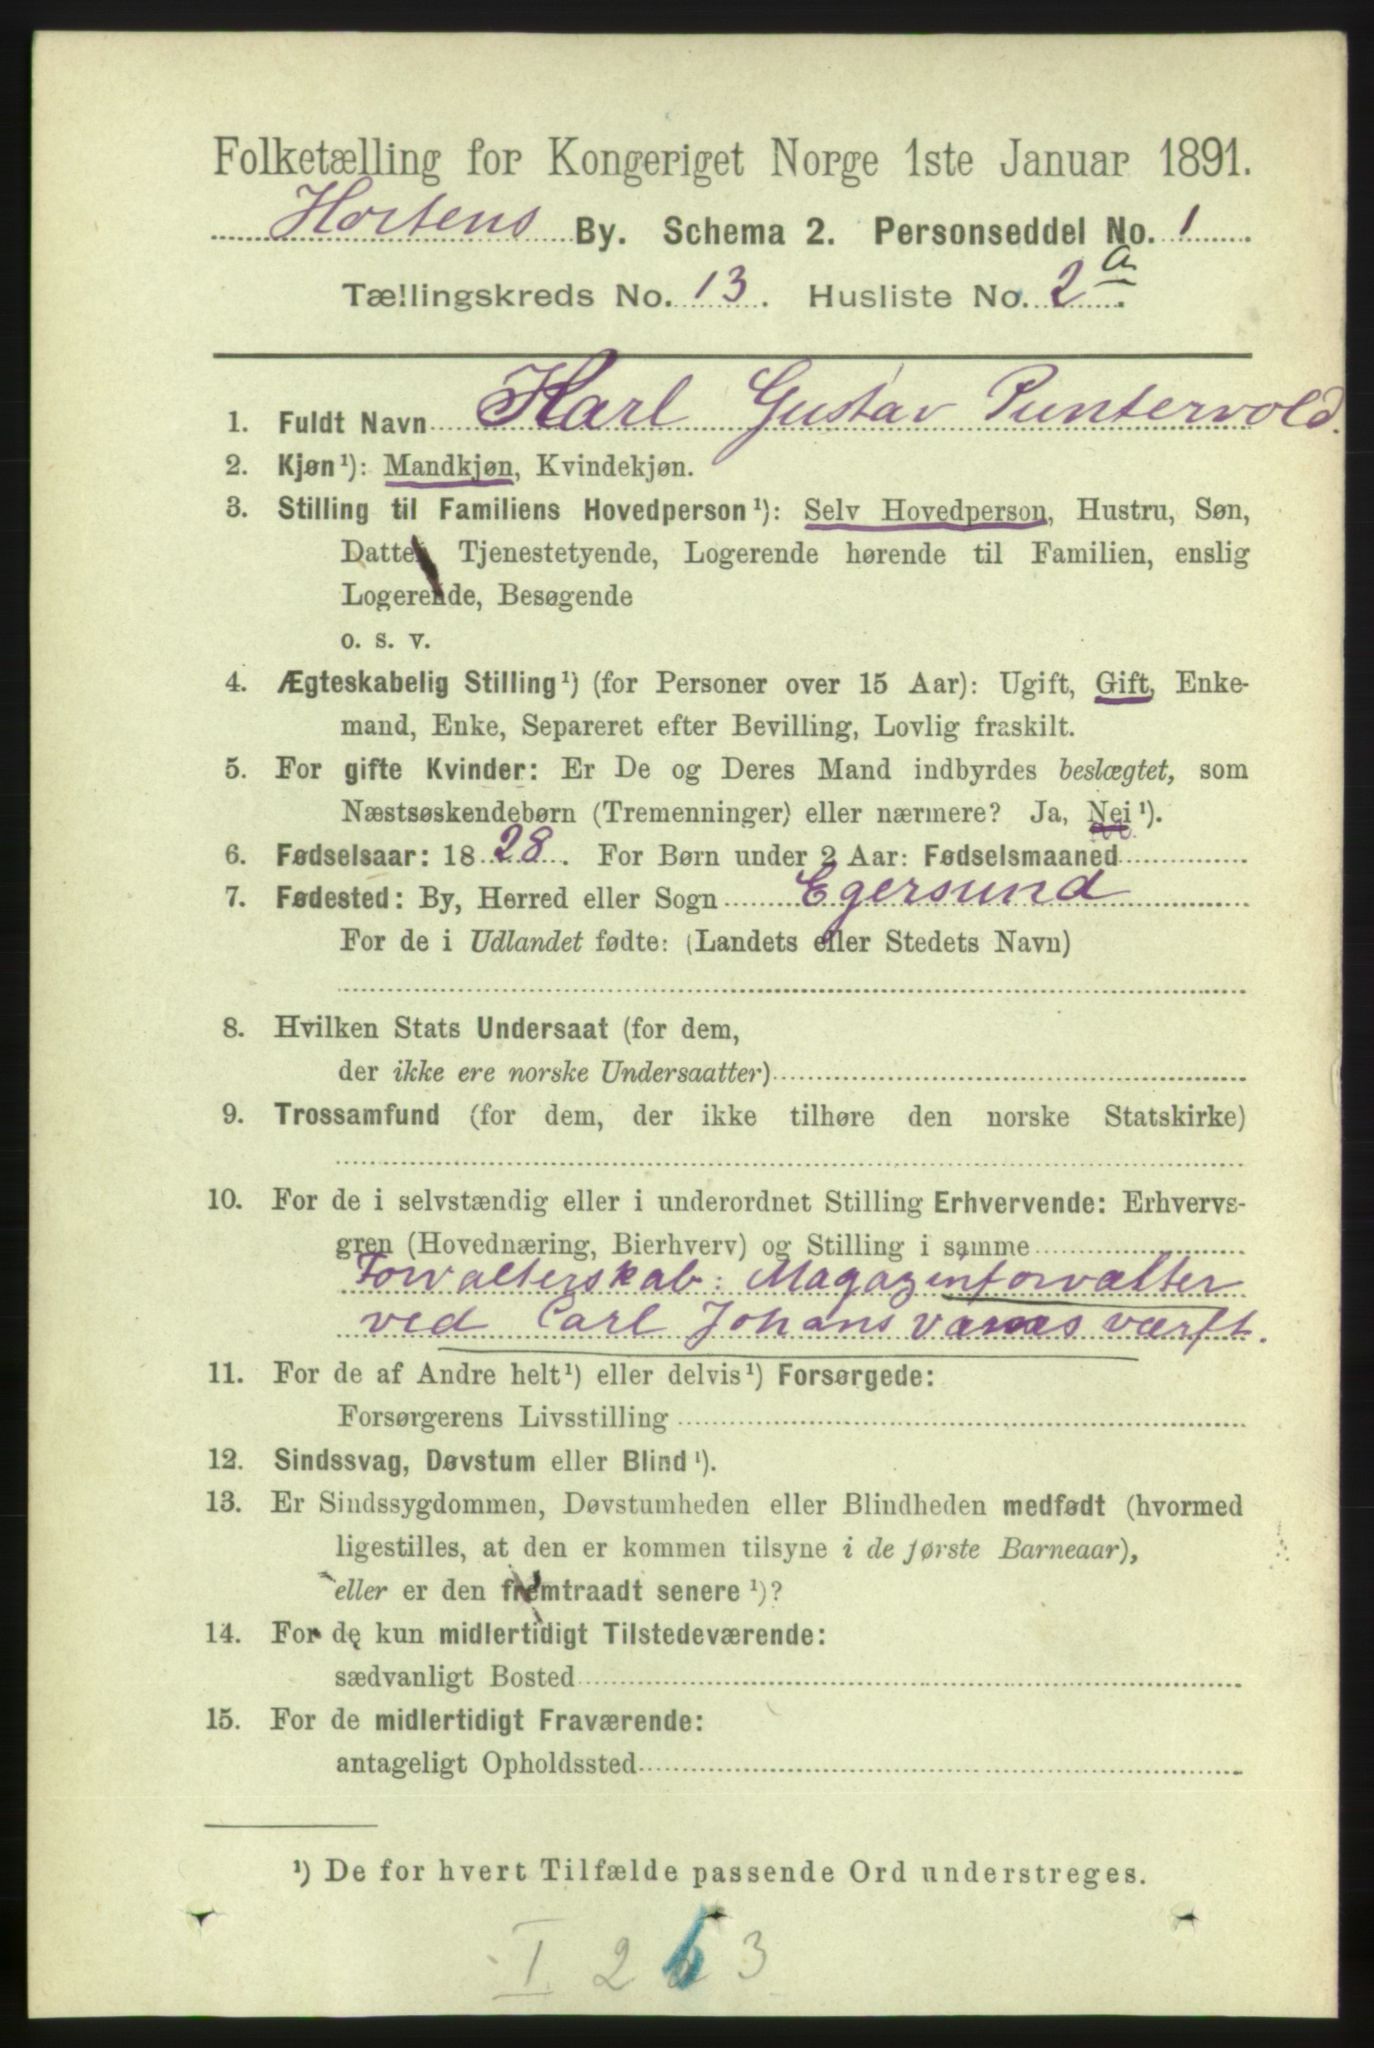 Folketælling for Kongeriget Norge 1ste Januar 1891.
Hortens By. Schema 2. Personseddel No. 1
Tællingskreds No. 13. Husliste No. 2 a.
1. Fuldt Navn Karl Gustav Puntervold.
2. Kjøn¹): Mandkjøn, Kvindekjøn.
3. Stilling til Familiens Hovedperson¹): Selv Hovedperson, Hustru, Søn,
Datter Tjenestetyende, Logerende hørende til Familien, enslig
Logerende, Besøgende
o. s. v.
4. Ægteskabelig Stilling¹) (for Personer over 15 Aar): Ugift, Gift, Enke-
mand, Enke, Separeret efter Bevilling, Lovlig fraskilt.
5. For gifte Kvinder: Er De og Deres Mand indbyrdes beslægtet, som
Næstsøskendebørn (Tremenninger) eller nærmere? Ja, Nei¹).
6. Fødselsaar: 1828. For Børn under 2 Aar: Fødselsmaaned
7. Fødested: By, Herred eller Sogn Egersund
For de i Udlandet fødte: (Landets eller Stedets Navn)
8. Hvilken Stats Undersaat (for dem,
der ikke ere norske Undersaatter)
9. Trossamfund (for dem, der ikke tilhøre den norske Statskirke)
10. For de i selvstændig eller i underordnet Stilling Erhvervende: Erhvervs-
gren (Hovednæring, Bierhverv) og Stilling i samme
Forvalterskab: Magazinforvalter
ved Carl Johans værft.
11. For de af Andre helt¹) eller delvis¹) Forsørgede:
Forsørgerens Livsstilling
12. Sindssvag, Døvstum eller Blind¹).
13. Er Sindssygdommen, Døvstumheden eller Blindheden medfødt (hvormed
ligestilles, at den er kommen tilsyne i de første Barneaar),
eller er den fremtraadt senere¹)?
14. For de kun midlertidigt Tilstedeværende:
sædvanligt Bosted
15. For de midlertidigt Fraværende:
antageligt Opholdssted
¹) De for hvert Tilfælde passende Ord understreges.
I 2 6 3